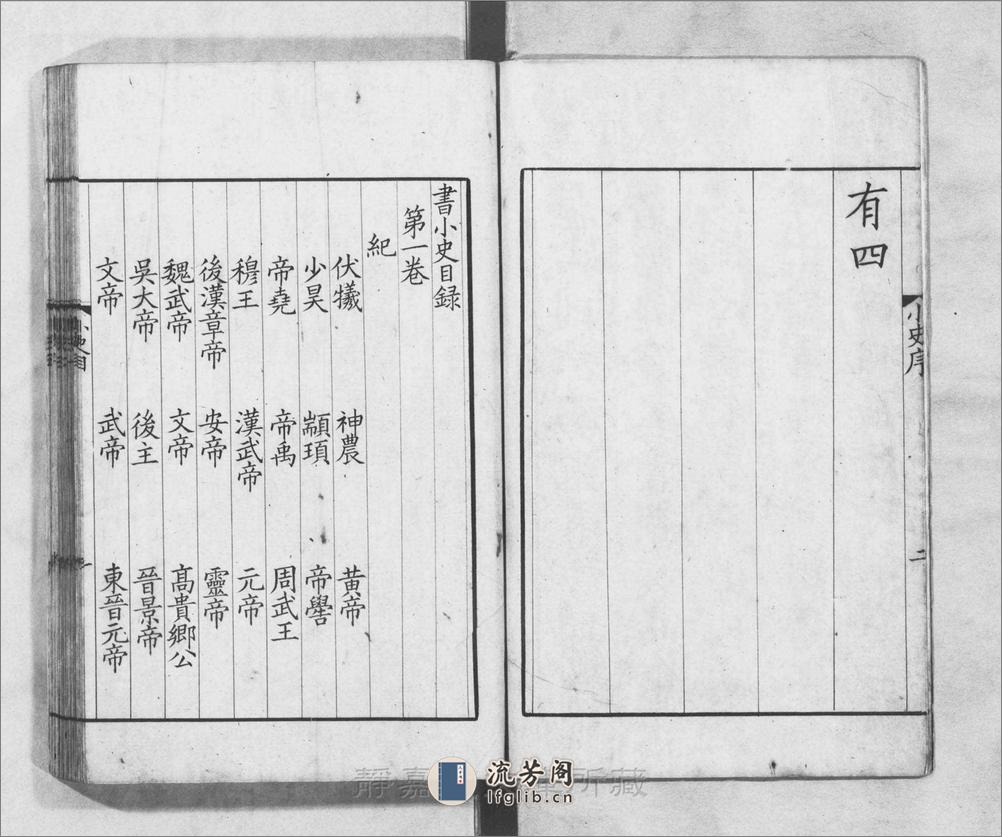 有四
小史序
二
書小史目録
第一卷
紀
伏犧 神農 黄帝
少昊 顓頊 帝嚳
帝堯 帝禹 周武王
穆王 漢武帝 元帝
後漢章帝 安帝 靈帝
魏武帝 文帝 高貴鄉公
吳大帝 後主 晉景帝
文帝 武帝 東晉元帝
小史目
一
靜嘉 所藏
流芳阁
lfglib.cn